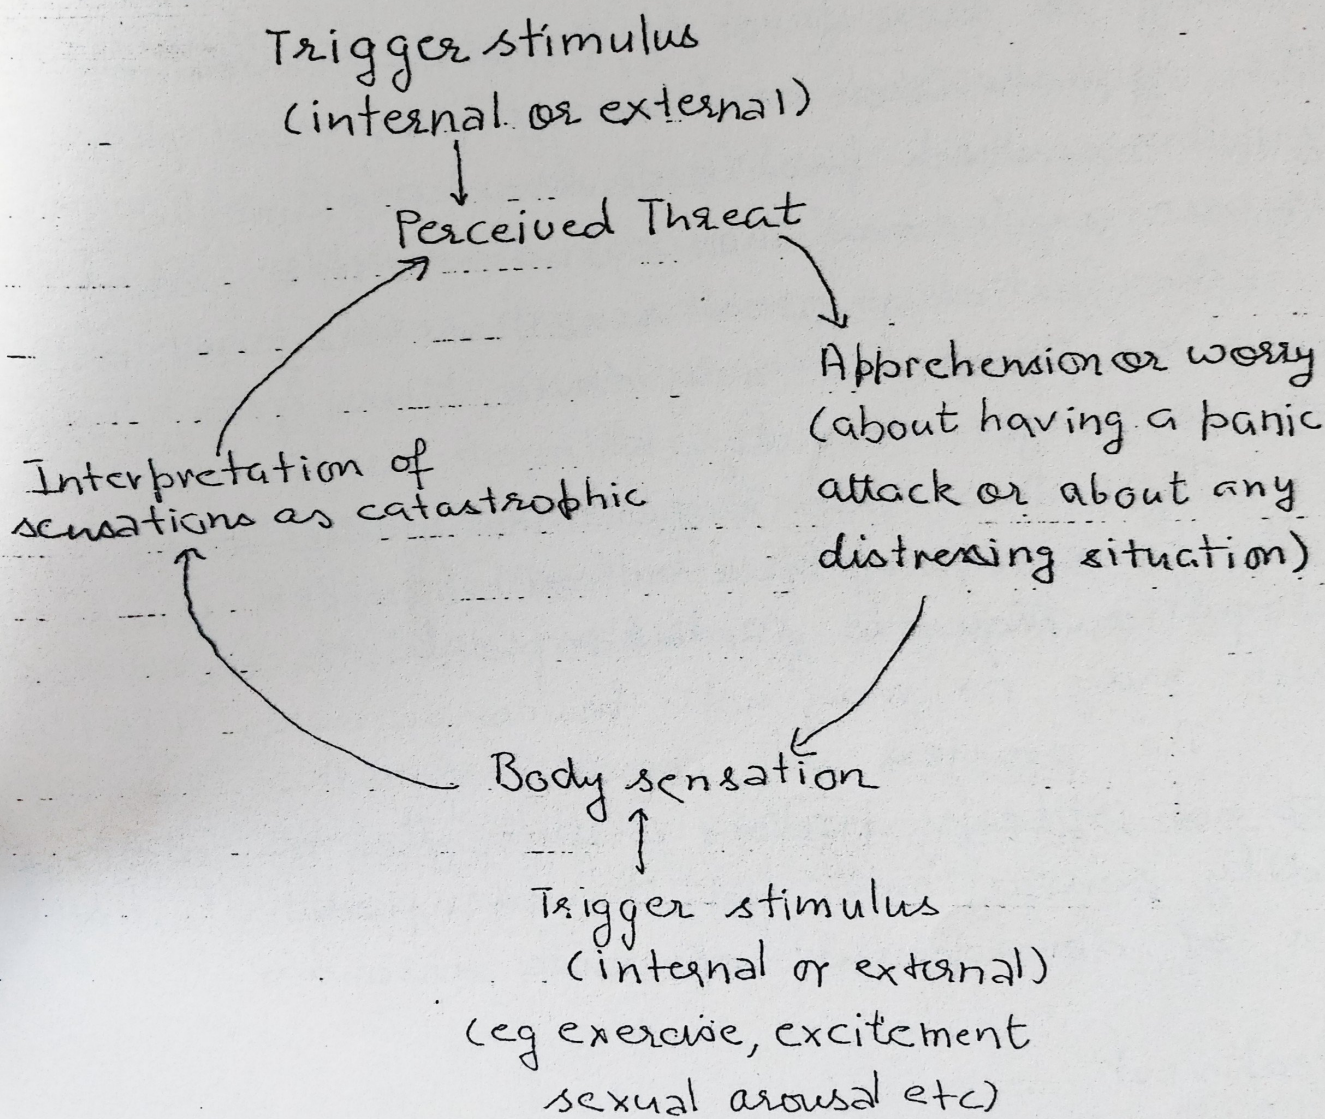 Trigger stimulus
(internal or external)
Perceived Threat
Apprehension or worry
(about having a panic
attack or about any
distressing situation)
Interpretation of
sensations as catastrophic
Body sensation
Trigger stimulus
(internal or external)
(eg exercise, excitement
sexual arousal etc)